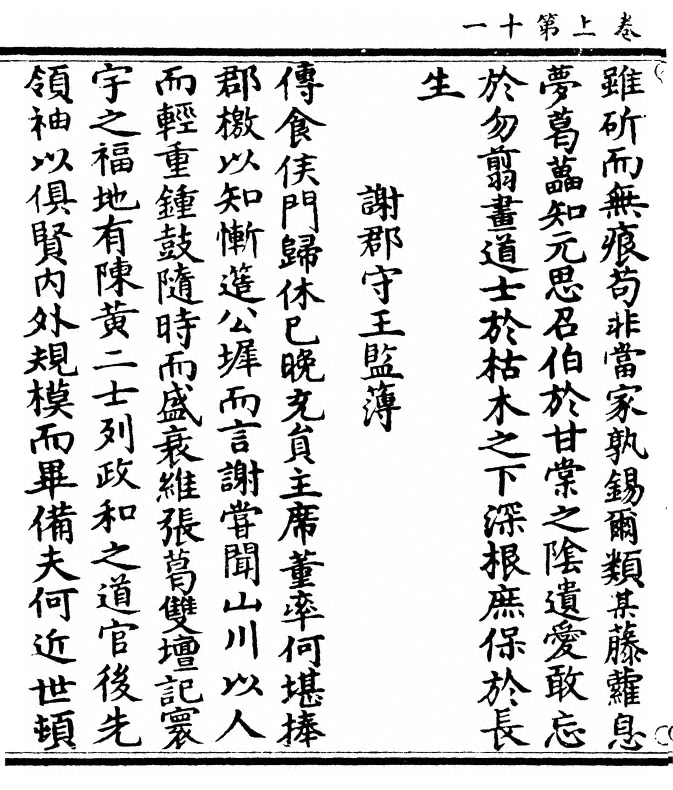 卷上第十一
雖斫而無痕苟非當家孰錫爾類某藤蘿息
夢葛藟知元思召伯於甘棠之陰遺愛敢忘
於勿翦畫道士於枯木之下深根庶保於長
生
謝郡守王監簿
傳食侯門歸休已晚充負主席董率何堪捧
郡檄以知慚筵公墀而言謝甞聞山川以人
而輕重鍾鼓隨時而盛衰維張葛雙壇記寰
宇之福地有陳黃二士列政和之道官後先
領袖以俱賢內外規模而畢備夫何近世頓